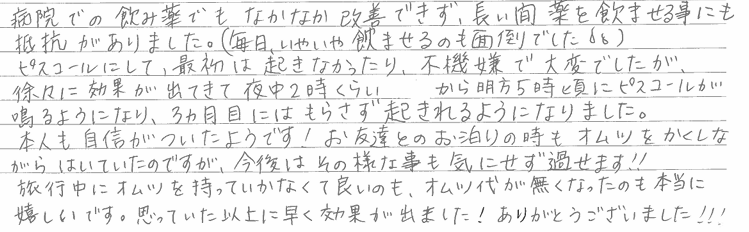 病院での飲み薬でもなかなか改善できず、長い間薬を飲ませる事にも
抵抗がありました。(毎日、いやいや飲ませるのも面倒でした
ピスコールにして、最初は起きなかったり、不機嫌で大変でしたが、
徐々に効果が出てきて夜中2時くらい から明方5時頃にピスコールが
鳴るようになり、3ヵ月目にはもらさず起きれるようになりました。
本人も自信がついたようです!お友達とのお泊りの時もオムツをかくしな
がらはいていたのですが、今後はその様な事も気にせず過せます!!
旅行中にオムツを持っていかなくて良いのも、オムツ代が無くなったのも本当に
嬉しいです。思っていた以上に早く効果が出ました!ありがとうございました!!!